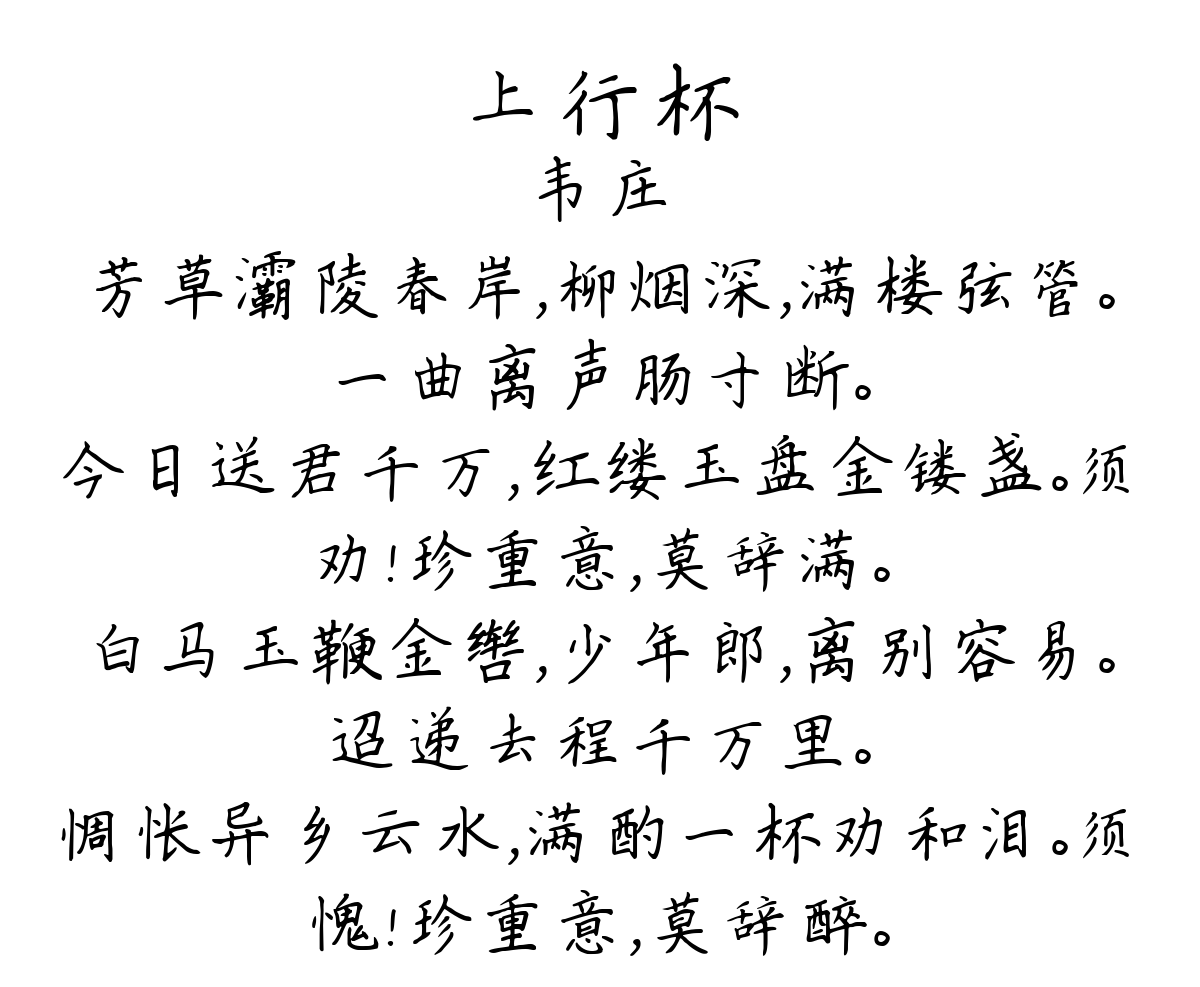 上行杯
韦庄
芳草灞陵春岸,柳烟深,满楼弦管。
一曲离声肠寸断。
今日送君千万,红缕玉盘金镂盏。须
劝!珍重意,莫辞满。
白马玉鞭金辔,少年郎,离别容易。
迢递去程千万里。
惆怅异乡云水,满酌一杯劝和泪。须
愧!珍重意,莫辞醉。